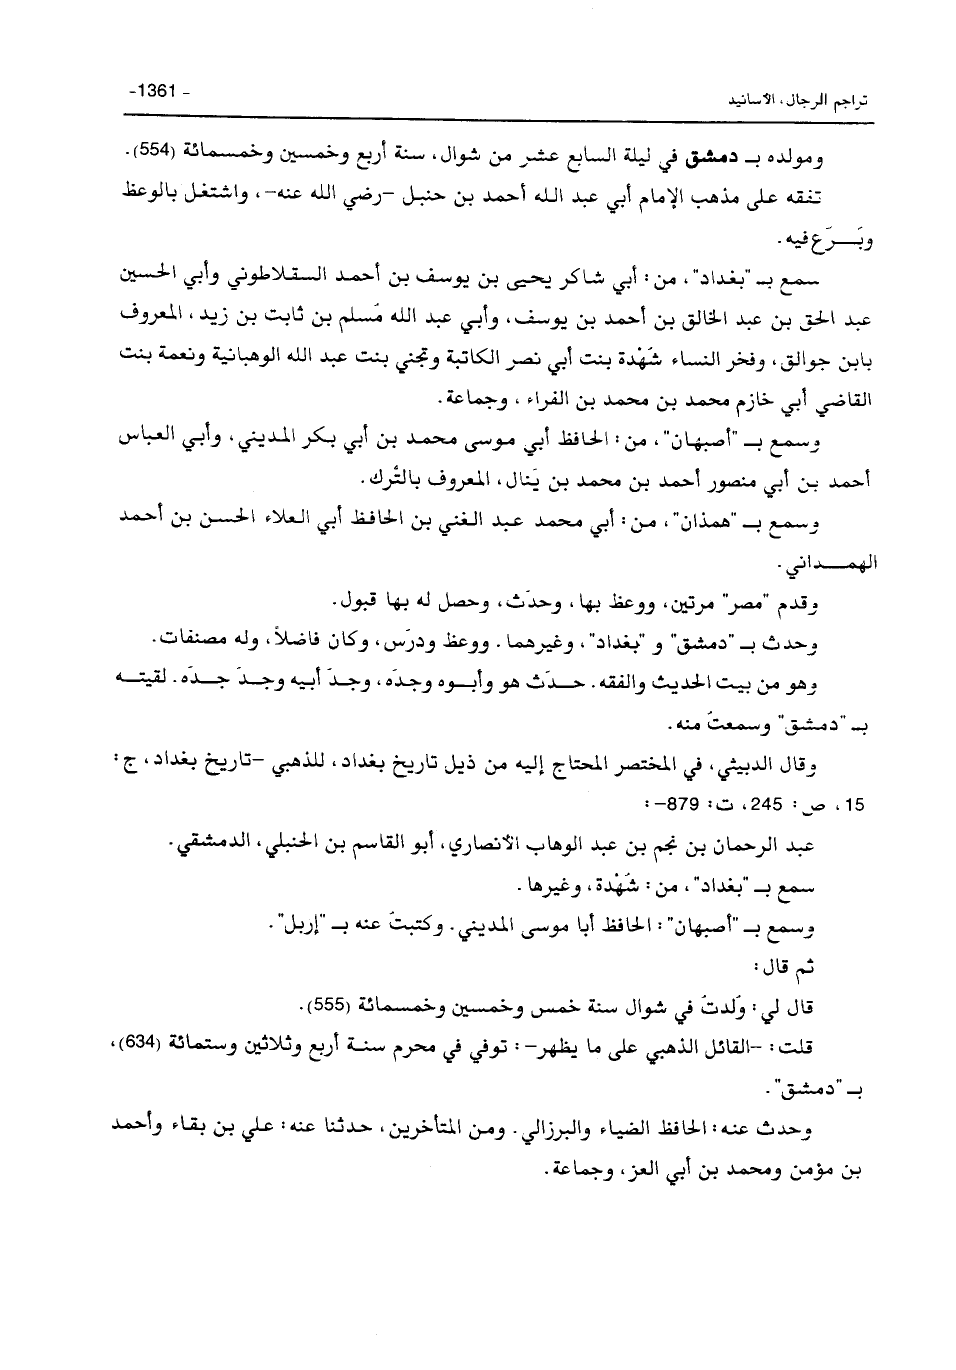 تراجم الرجال، الأسانيد
-1361 -
ومولده بـ دمشق في ليلة السابع عشر من شوال، سنة أربع وخمسين وخمسمائة (554).
تفقه على مذهب الإمام أبي عبد الله أحمد بن حنبل -رضي الله عنه-، واشتغل بالوعظ
وبَرَع فيه.
سمع بـ "بغداد"، من: أبي شاكر يحيى بن يوسف بن أحمد السقلاطوني وأبي الحسين
عبد الحق بن عبد الخالق بن أحمد بن يوسف، وأبي عبد الله مُسلم بن ثابت بن زيد، المعروف
بابن جوالق، وفخر النساء شُهْدة بنت أبي نصر الكاتبة وتجني بنت عبد الله الوهبانية ونعمة بنت
القاضي أبي خازم محمد بن محمد بن الفراء، وجماعة.
وسمع بـ "أصبهان"، من: الحافظ أبي موسى محمد بن أبي بكر المديني، وأبي العباس
أحمد بن أبي منصور أحمد بن محمد بن يَنال، المعروف بالتُّرك.
وسمع بـ "همذان"، من: أبي محمد عبد الغني بن الحافظ أبي العلاء الحسن بن أحمد
الهمـــداني.
وقدم "مصر" مرتين، ووعظ بها، وحدّث، وحصل له بها قبول.
وحدث بـ "دمشق" و "بغداد"، وغيرهما. ووعظ ودرّس، وكان فاضلاً، وله مصنفات.
وهو من بيت الحديث والفقه. حــدّث هو وأبــوه وجدّه، وجدّ أبيه وجــدّ جــدّه. لقيتــه
بـ "دمشق" وسمعتُ منه.
وقال الدبيثي، في المختصر المحتاج إليه من ذيل تاريخ بغداد، للذهبي -تاريخ بغداد، ج:
15، ص: 245، ت: 879-:
عبد الرحمان بن نجم بن عبد الوهاب الأنصاري، أبو القاسم بن الحنبلي، الدمشقي.
سمع بـ "بغداد"، من: شُهْدة، وغيرها.
وسمع بـ "أصبهان": الحافظ أبا موسى المديني. وكتبتُ عنه بـ "إربل".
ثم قال:
قال لي: وُلدتُ في شوال سنة خمس وخمسين وخمسمائة (555).
قلت: -القائل الذهبي على ما يظهر-: توفي في محرم سنة أربع وثلاثين وستمائة (634)،
بـ "دمشق".
وحدث عنه: الحافظ الضياء والبرزالي. ومن المتأخرين، حدثنا عنه: علي بن بقاء وأحمد
بن مؤمن ومحمد بن أبي العز، وجماعة.